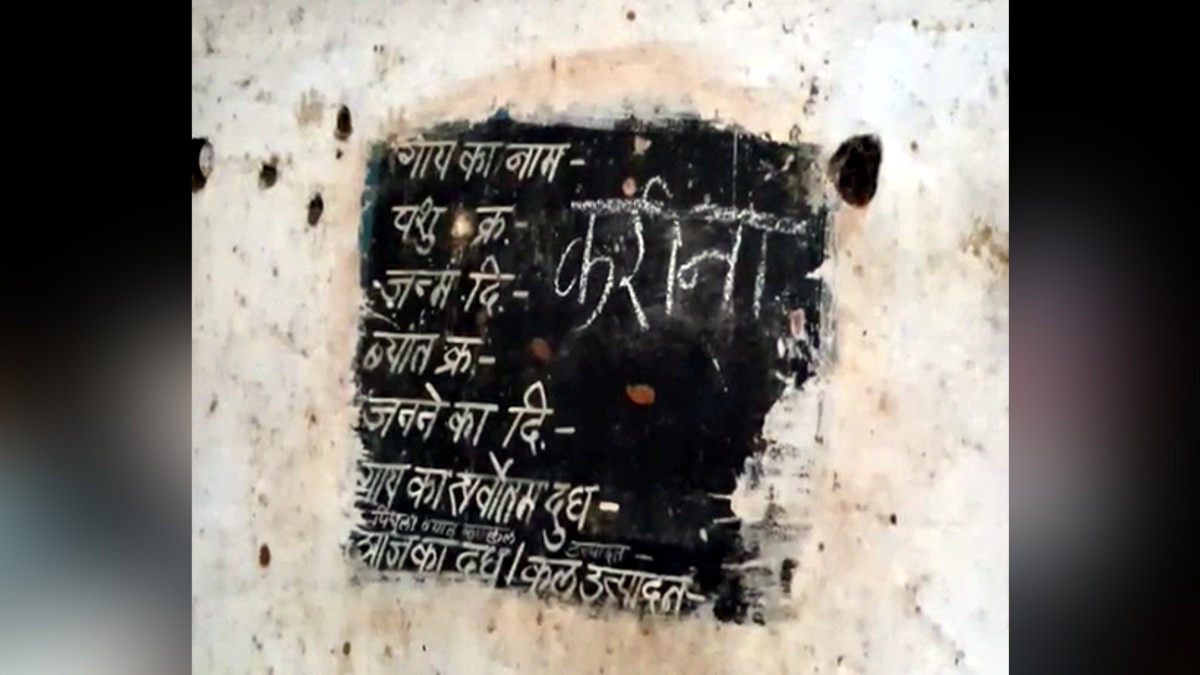 गाय का नाम -
पशु क्र.-
करीना
जन्म दि.-
ब्यांत क्र.-
जनने का दि.-
गाय का सर्वोतम दुध -
पिछला ब्यात का कुल उत्पादन -
आज का दुध / कुल उत्पादन -